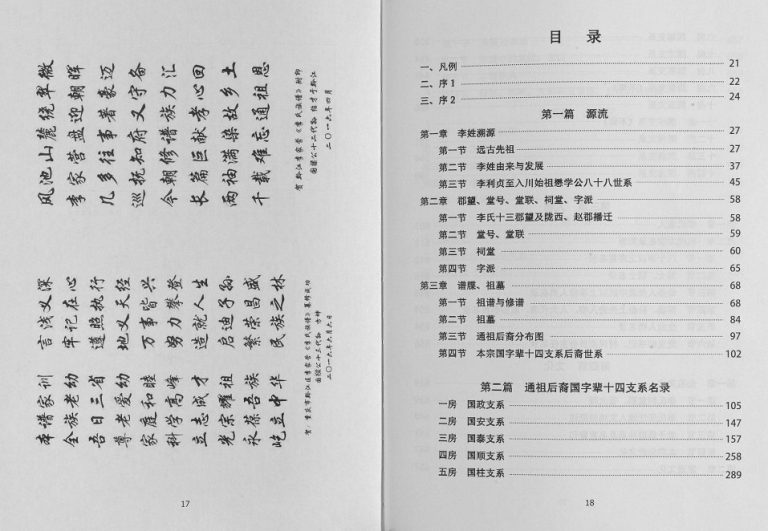 本谱家训 言浅义深
全族老幼 牢记在心
吾日三省 遵照执行
尊老爱幼 地义天经
家庭和睦 万事皆兴
科学高峰 努力攀登
立志成才 造就人生
光宗耀祖 启迪子孙
永葆吾族 繁荣昌盛
屹立中华 民族之林
贺:重庆市黔江区李家营《李氏族谱》纂修成功
公十三代孙
二〇一九年六月六日
风池山麓绕翠微
李家营盘迎朝晖
几多往事著豪迈
巡抚知府又守备
今朝修谱族力汇
长篇巨献孝心回
两袖满染故乡土
千载难忘通祖恩
贺黔江李家营《李氏族谱》付印
公十三代孙 于黔江
二〇一九年四月
17
目 录
一、凡例 21
二、序1 22
三、序2 24
第一篇 源流
第一章 李姓溯源 27
第一节 远古先祖 27
第二节 李姓由来与发展 37
第三节 李利贞至入川始祖懋学公八十八世系 45
第二章 郡望、堂号、堂联、祠堂、字派 58
第一节 李氏十三郡望及陇西、赵郡播迁 58
第二节 堂号、堂联 59
第三节 祠堂 60
第四节 字派 65
第三章 谱牒、祖墓 68
第一节 祖谱与修谱 68
第二节 祖墓 84
第三节 通祖后裔分布图 97
第四节 本宗国字辈十四支系后裔世系 102
第二篇 通祖后裔国字辈十四支系名录
一房 国政支系 105
二房 国安支系 147
三房 国泰支系 157
四房 国顺支系 258
五房 国柱支系 289
18